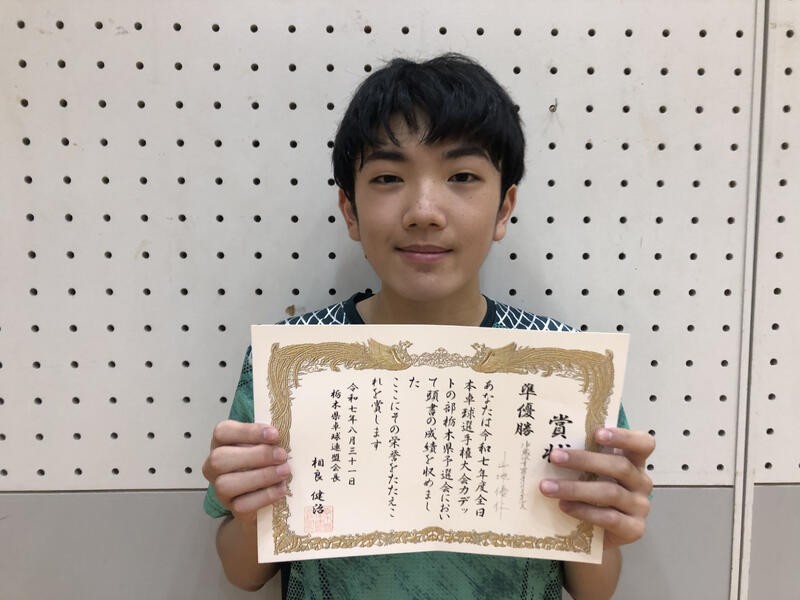 賞状
準優勝
あなたは令和七年度全日
本卓球選手権大会カデッ
トの部栃木県予選会におい
て頭書の成績を収めまし
た
ここにその栄誉をたたえこ
れを賞します
令和七年八月三十一日
栃木県卓球連盟会長
相良健治